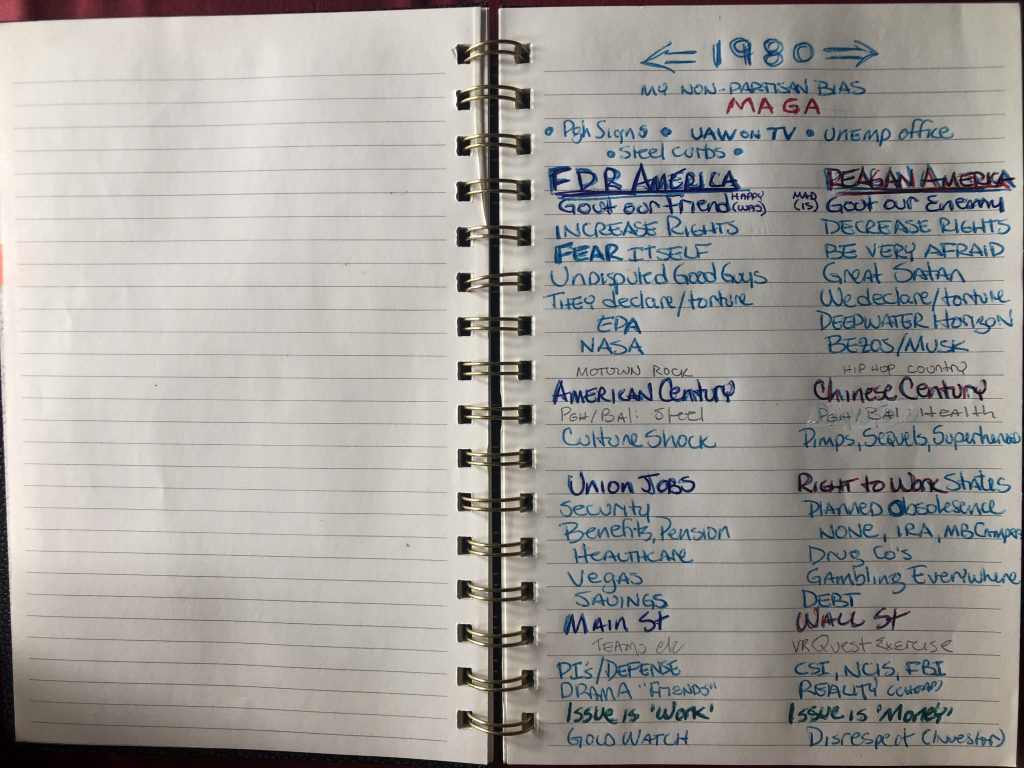 ⇐ 1980 ⇒
MY NON-PARTISAN BIAS
MAGA
• Pgh Signs • UAW ON TV • Unemp office
• Steel Curbs •
FDR AMERICA REAGAN AMERICA
Govt our friend HAPPY (WAS) MAD (IS) Govt our Enemy
INCREASE RIGHTS DECREASE RIGHTS
FEAR ITSELF BE VERY AFRAID
Undisputed Good Guys Great Satan
THEY declare/torture We declare/torture
EPA DEEPWATER HORIZON
NASA BEZOS/MUSK
MOTOWN ROCK HIP HOP COUNTRY
AMERICAN CENTURY Chinese Century
PGH/BAl: Steel PGH/BAl: Health
Culture Shock Pimps, Sequels, Superheroes
UNION JOBS RIGHT to WORK States
Security PLANNED Obsolesence
Benefits, Pension NONE, IRA, MB Camper
HEALTHCARE Drug Co's
VEGAS Gambling Everywhere
SAVINGS DEBT
MAIN St WALL St
TEAMS etc VR Quest Exercise
PI's/DEFENSE CSI, NCIS, FBI
DRAMA "FRIENDS" REALITY (CHEAP)
Issue is 'Work' Issue is 'Money'
GOLD WATCH Disrespect (Investor)